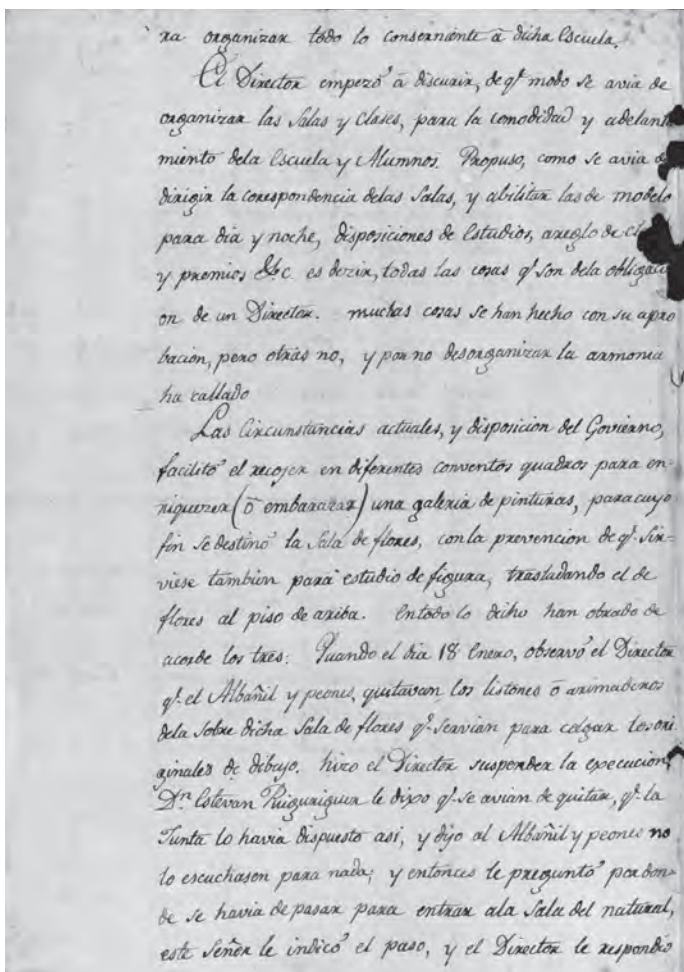 ra organizar todo lo conserniente â dicha Escuela.
El Director empezó â discurir, de q.ͤ modo se avia de
organizar las Salas y Clases, para la comodidad y adelanta
miento dela Escuela y Alumnos. Propuso, como se avia de
dirigir la corespondencia delas Salas, y abilitar las de modelo
para dia y noche, disposiciones de Estudios, areglo de
y premios &c. es dezir, todas las cosas q.ͤ son dela obligaci
on de un Director. muchas cosas se han hecho con su apro
bacion, pero otras no, y por no desorganizar la armonia
ha callado
Las Circunstancias actuales, y disposicion del Govierno,
facilitó el recojer en diferentes conventos quadros para en-
riquezer (ô embarazar) una galeria de pinturas, para cuyo
fin se destinó la Sala de flores, con la prevencion de q.ͤ Sir-
viese tambien para estudio de figura, trasladando el de
flores al piso de ariba. Entodo lo dicho han obrado de
acorde los tres: Quando el dia 18 Enero, observó el Director
q.ͤ el Albañil y peones, quitavan los listones ô arimaderos
dela Sobre dicha Sala de flores q.ͤ servian para colgar los ori
ginales de dibujo. hizo el Director suspender la execucion,
D.ⁿ Estevan Puiguriguer le dixo q.ͤ se avian de quitar, q.ͤ la
Junta lo havia dispuesto asi, y dijo al Albañil y peones no
lo escuchason para nada; y entonces le preguntó por don-
de se havia de pasar para entrar ala Sala del natural,
este Señor le indicó el paso, y el Director le respondio